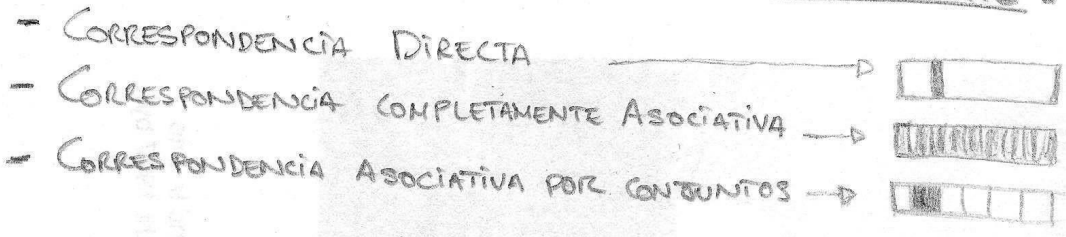 - CORRESPONDENCIA DIRECTA
- CORRESPONDENCIA COMPLETAMENTE ASOCIATIVA
- CORRESPONDENCIA ASOCIATIVA POR CONJUNTOS